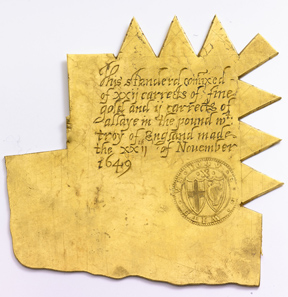 This standerd comixed
of xxij carrects of fine
gold and ij carrects of
allaye in the pound wt
troy of England made
the xxij of November
1649